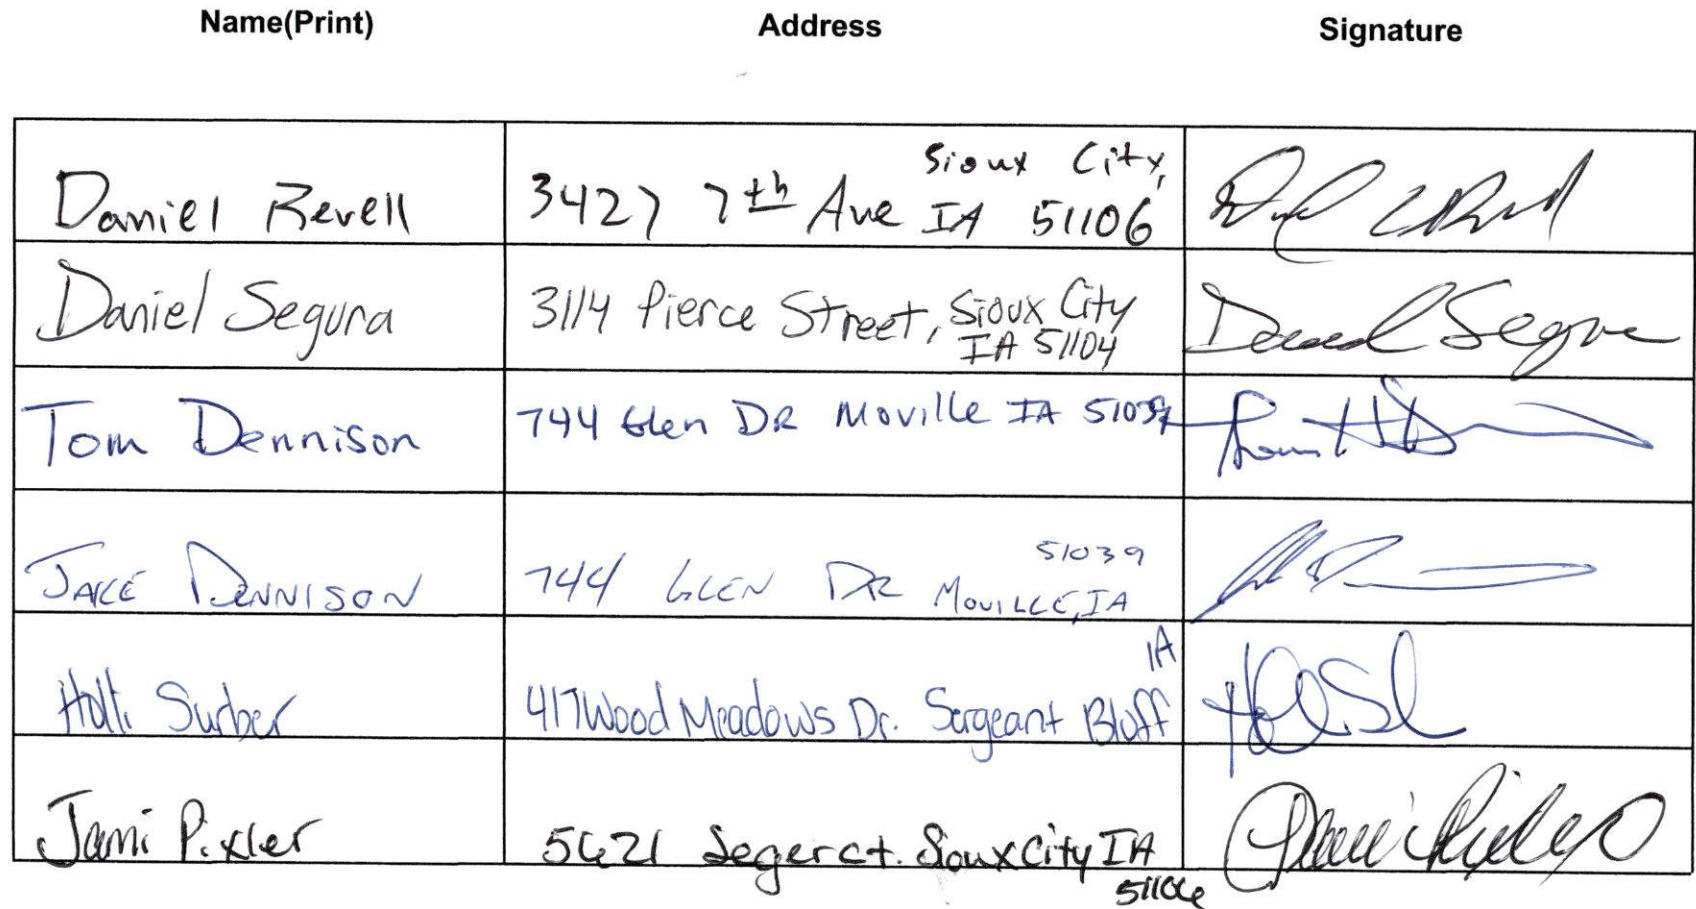 Name(Print) Address Signature
Daniel Revell 3427 7th Ave Sioux City, IA 51106
Daniel Segura 3114 Pierce Street, Sioux City IA 51104 Daniel Segura
Tom Dennison 744 Glen DR Moville IA 51039
JAKE DENNISON 744 GLEN DR MOVILLE, IA 51039
Holli Surber 417 Wood Meadows Dr. Sergeant Bluff IA
Jami Pixler 5621 Seger ct. Sioux City IA 51106